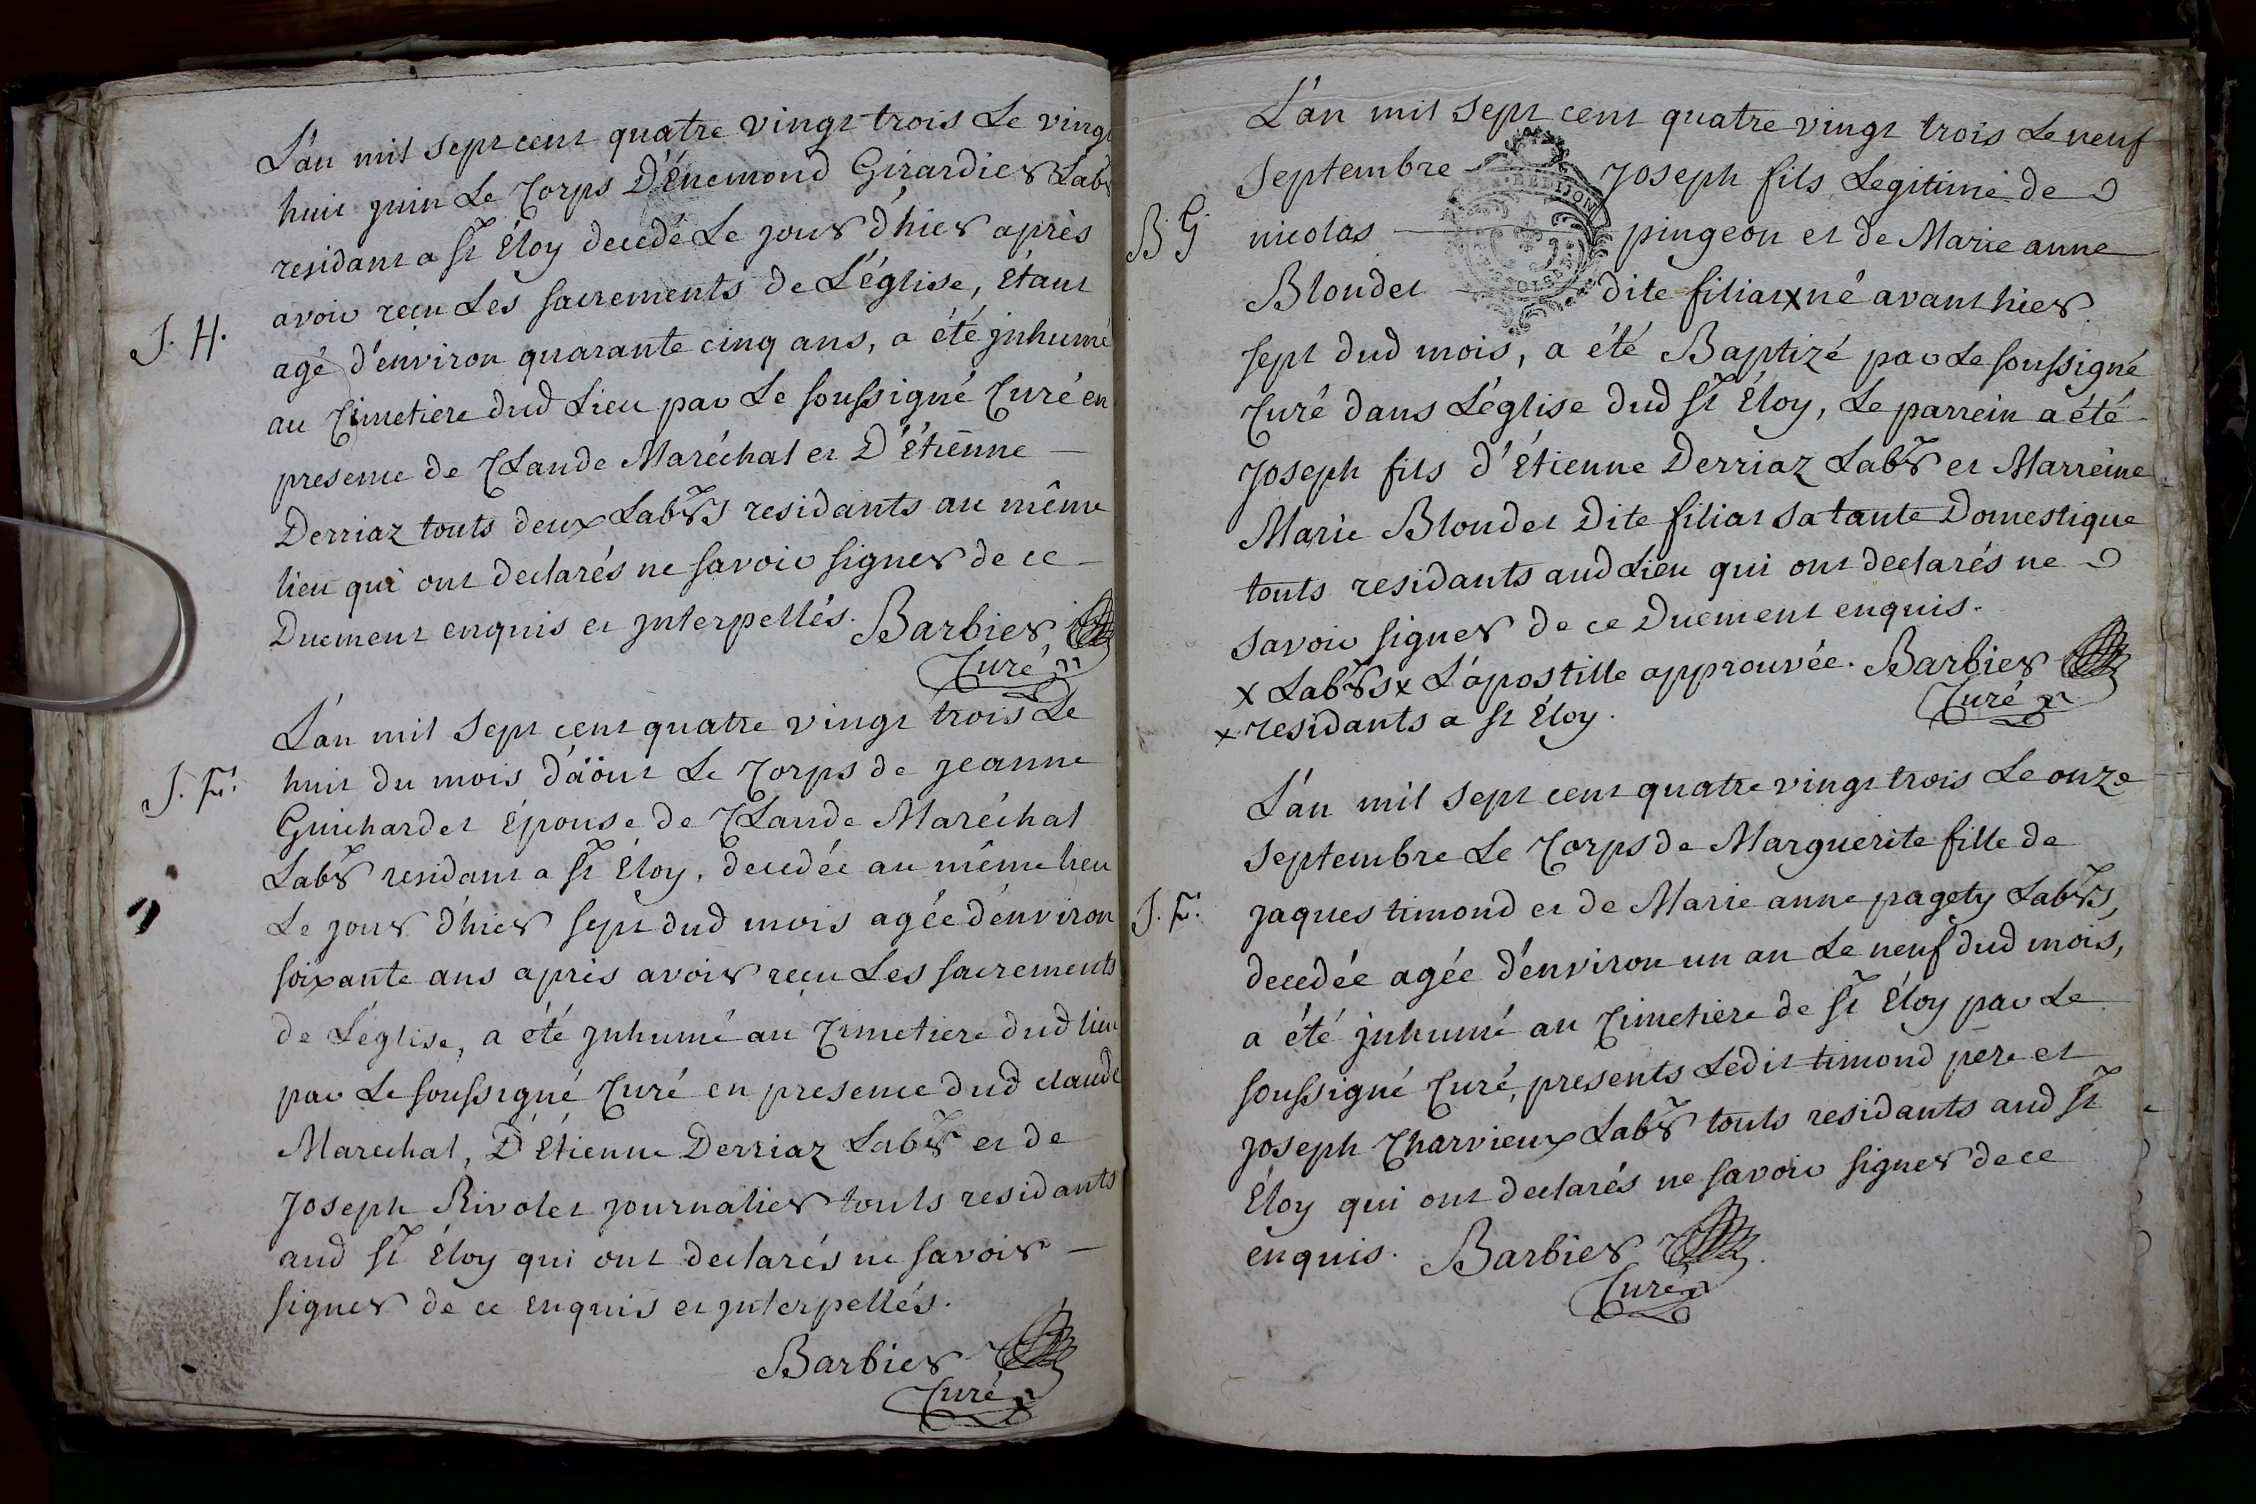 L'an mil sept cent quatre vingt trois Le vingt
huit juin Le Corps D'Énemond Girardier Labr
residant a St Éloy decedé Le jour d'hier après
avoir reçu Les sacrements de L'église, étant
J. H.
agé d'environ quarante cinq ans, a été jnhumé
au Cimetiere dud Lieu par Le soussigné Curé en
presence de Claude Maréchal et D'Étienne
Derriaz touts deux Labrs residants au même
lieu qui ont declarés ne savoir signer de ce
Duement enquis et jnterpellés. Barbier
Curé
L'an mil sept cent quatre vingt trois Le
J. F.
huit du mois d'août Le Corps de jeanne
Guichardet Épouse de Claude Maréchal
Labr residant a St Éloy, decedée au même lieu
Le jour d'hier sept dud mois agée d'environ
soixante ans après avoir reçu Les sacrements
de L'église, a été jnhumé au Cimetiere dud lieu
par Le soussigné Curé en presence dud claude
Marechal, D'Étienne Derriaz Labr et de
Joseph Rivolet journalier touts residants
aud St Éloy qui ont declarés ne savoir
signer de ce enquis et jnterpellés.
Barbier
Curé
L'an mil sept cent quatre vingt trois Le neuf
septembre Joseph fils Legitime de
B. G
nicolas pingeon et de Marie anne
Blondet dite filiat x né avant hier
sept dud mois, a été Baptizé par Le soussigné
Curé dans L'église dud St Éloy, Le parrein a été
Joseph fils d'Étienne Derriaz Labr et Marreine
Marie Blondet Dite filiat sa tante Domestique
touts residants aud Lieu qui ont declarés ne
savoir signer de ce Duement enquis.
x Labrs x L'apostille approuvée. Barbier
Curé
x residants a St Éloy.
L'an mil sept cent quatre vingt trois Le onze
septembre Le Corps de Marguerite fille de
J. F.
jaques timond et de Marie anne pagety Labrs,
decedée agée d'environ un an Le neuf dud mois,
a été jnhumé au Cimetiere de St Éloy par Le
soussigné Curé, presents Ledit timond père et
joseph Charvieux Labr touts residants aud St
Éloy qui ont declarés ne savoir signer de ce
enquis. Barbier
Curé